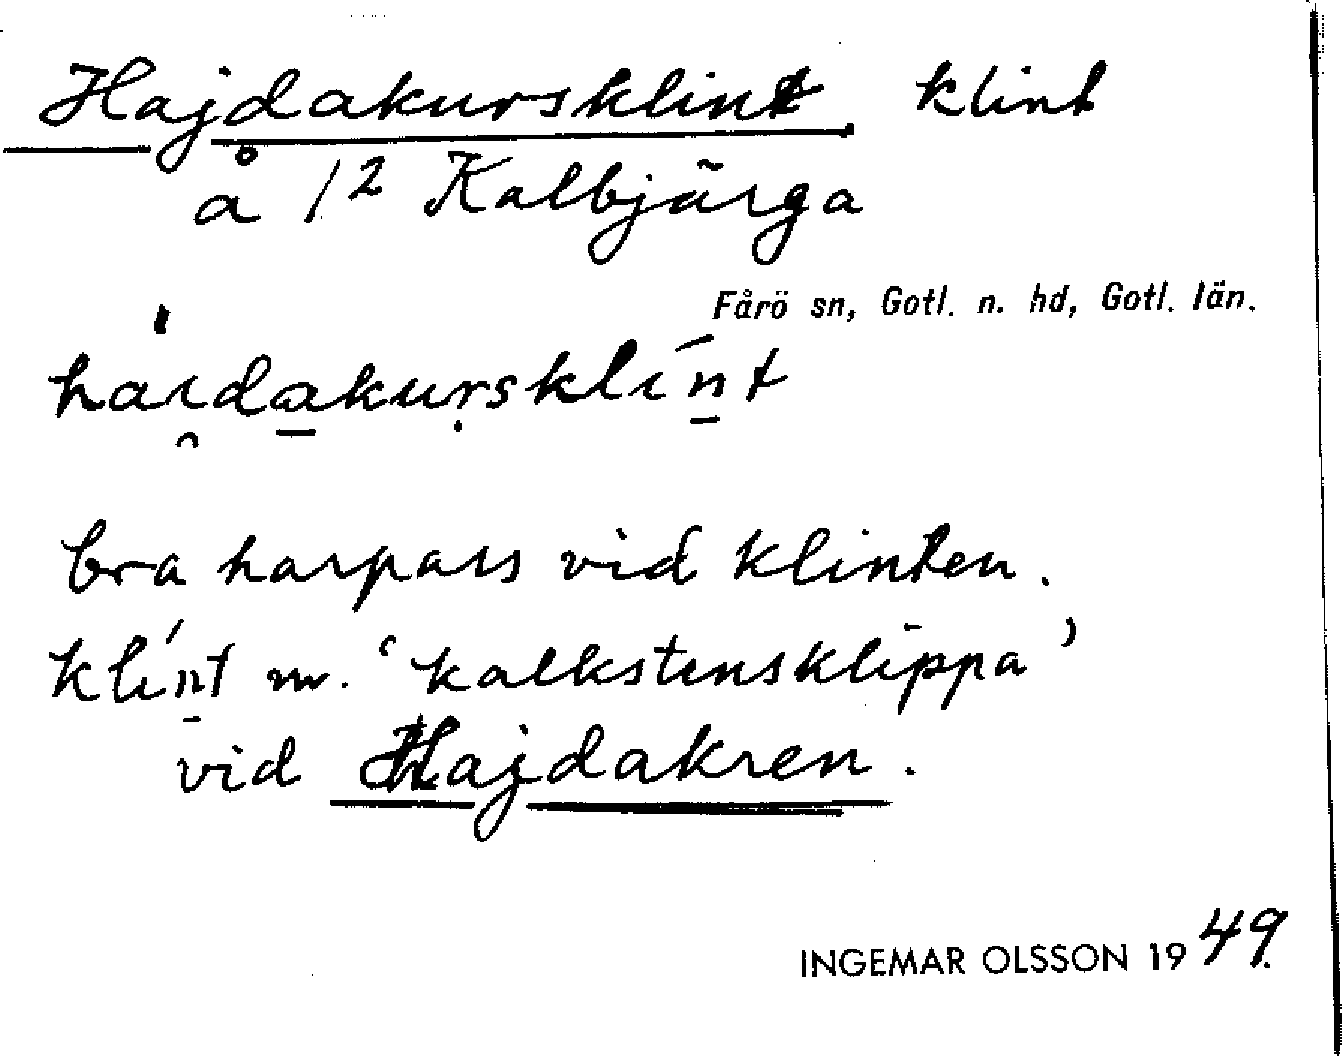 Hajdakursklint klint
å 1² Kalbjärga
Fårö sn, Gotl. n. hd, Gotl. län.
haidakursklint
bra harpass vid klinten.
klint m. 'kalkstensklippa'
vid Hajdakren.
INGEMAR OLSSON 1949.